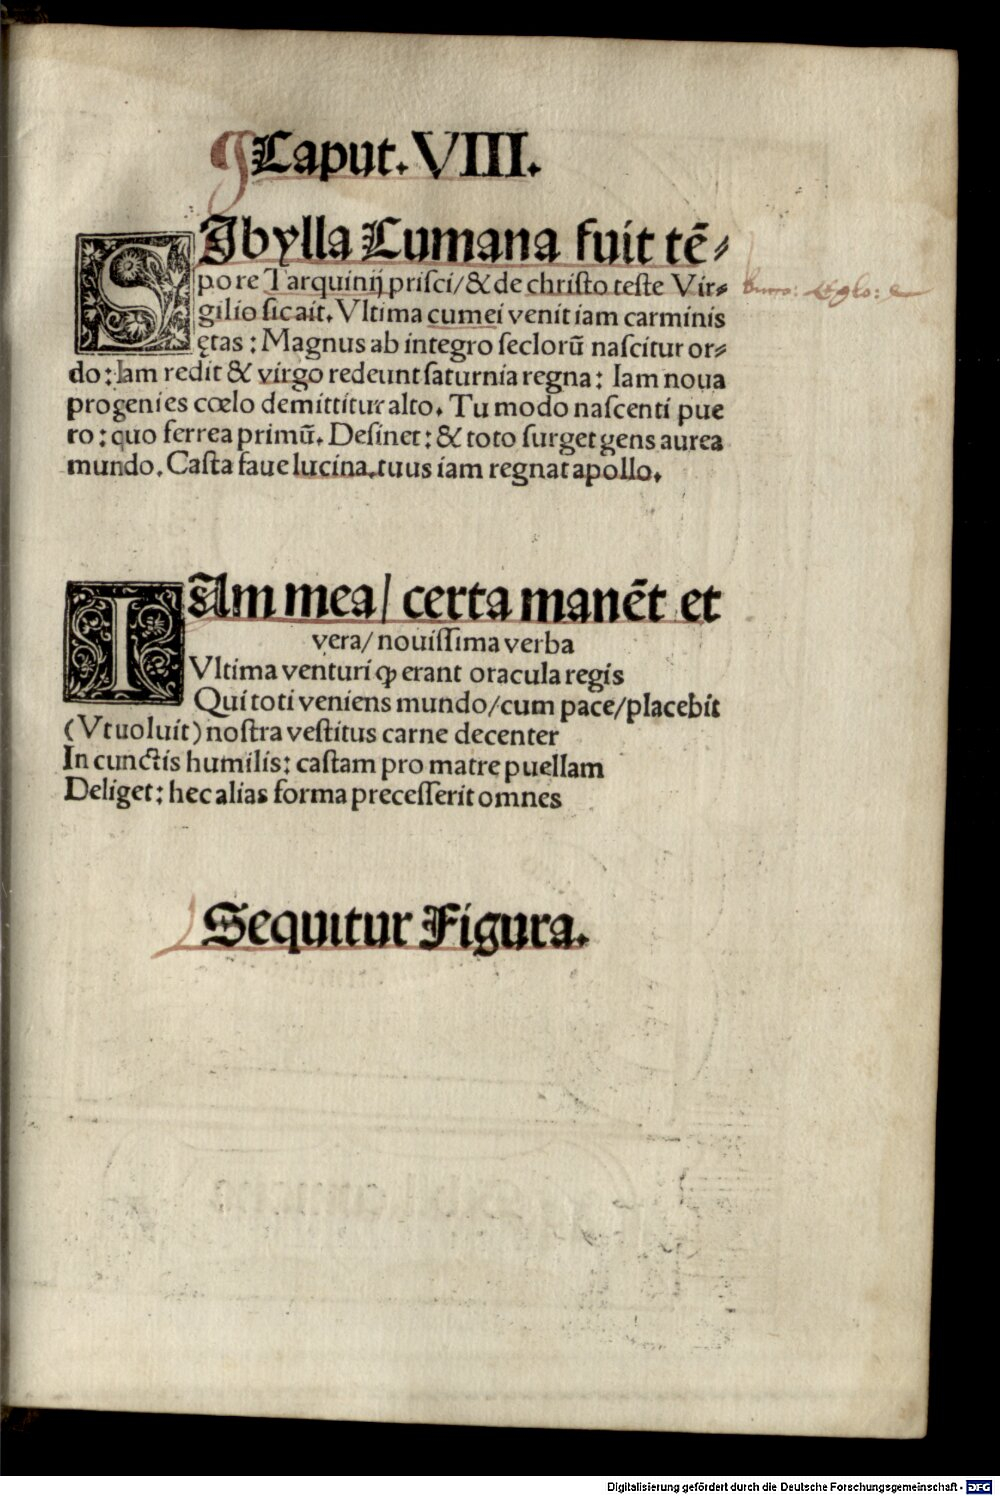 Caput. VIII.
SIbylla Cumana fuit tē⸗
pore Tarquinij prisci/ & de christo teste Vir⸗
gilio sic ait. Vltima cumei venit iam carminis
ętas : Magnus ab integro seclorū nascitur or⸗
do : Iam redit & virgo redeunt saturnia regna : Iam noua
progenies cœlo demittitur alto. Tu modo nascenti pue
ro : quo ferrea primū. Desinet : & toto surget gens aurea
mundo. Casta faue lucina. tuus iam regnat apollo.
IAm mea/ certa manēt et
vera/ nouissima verba
Vltima venturi ꝙ erant oracula regis
Qui toti veniens mundo/ cum pace/ placebit
(Vt uoluit) nostra vestitus carne decenter
In cunctis humilis : castam pro matre puellam
Deliget : hec alias forma precesserit omnes
Sequitur Figura.
Digitalisierung gefördert durch die Deutsche Forschungsgemeinschaft - DFG